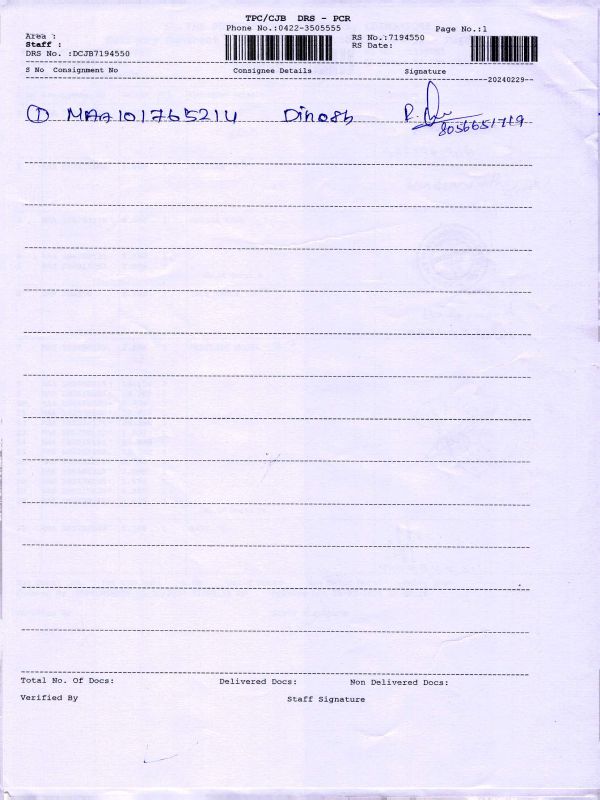 TPC/CJB DRS - PCR
Phone No.:0422-3505555
Page No.:1
Area :
RS No.:7194550
Staff :
RS Date:
DRS No. :DCJB7194550
S No Consignment No Consignee Details Signature
20240229
① MAA101765214 Dinesh
8056651719
Total No. Of Docs: Delivered Docs: Non Delivered Docs:
Verified By Staff Signature